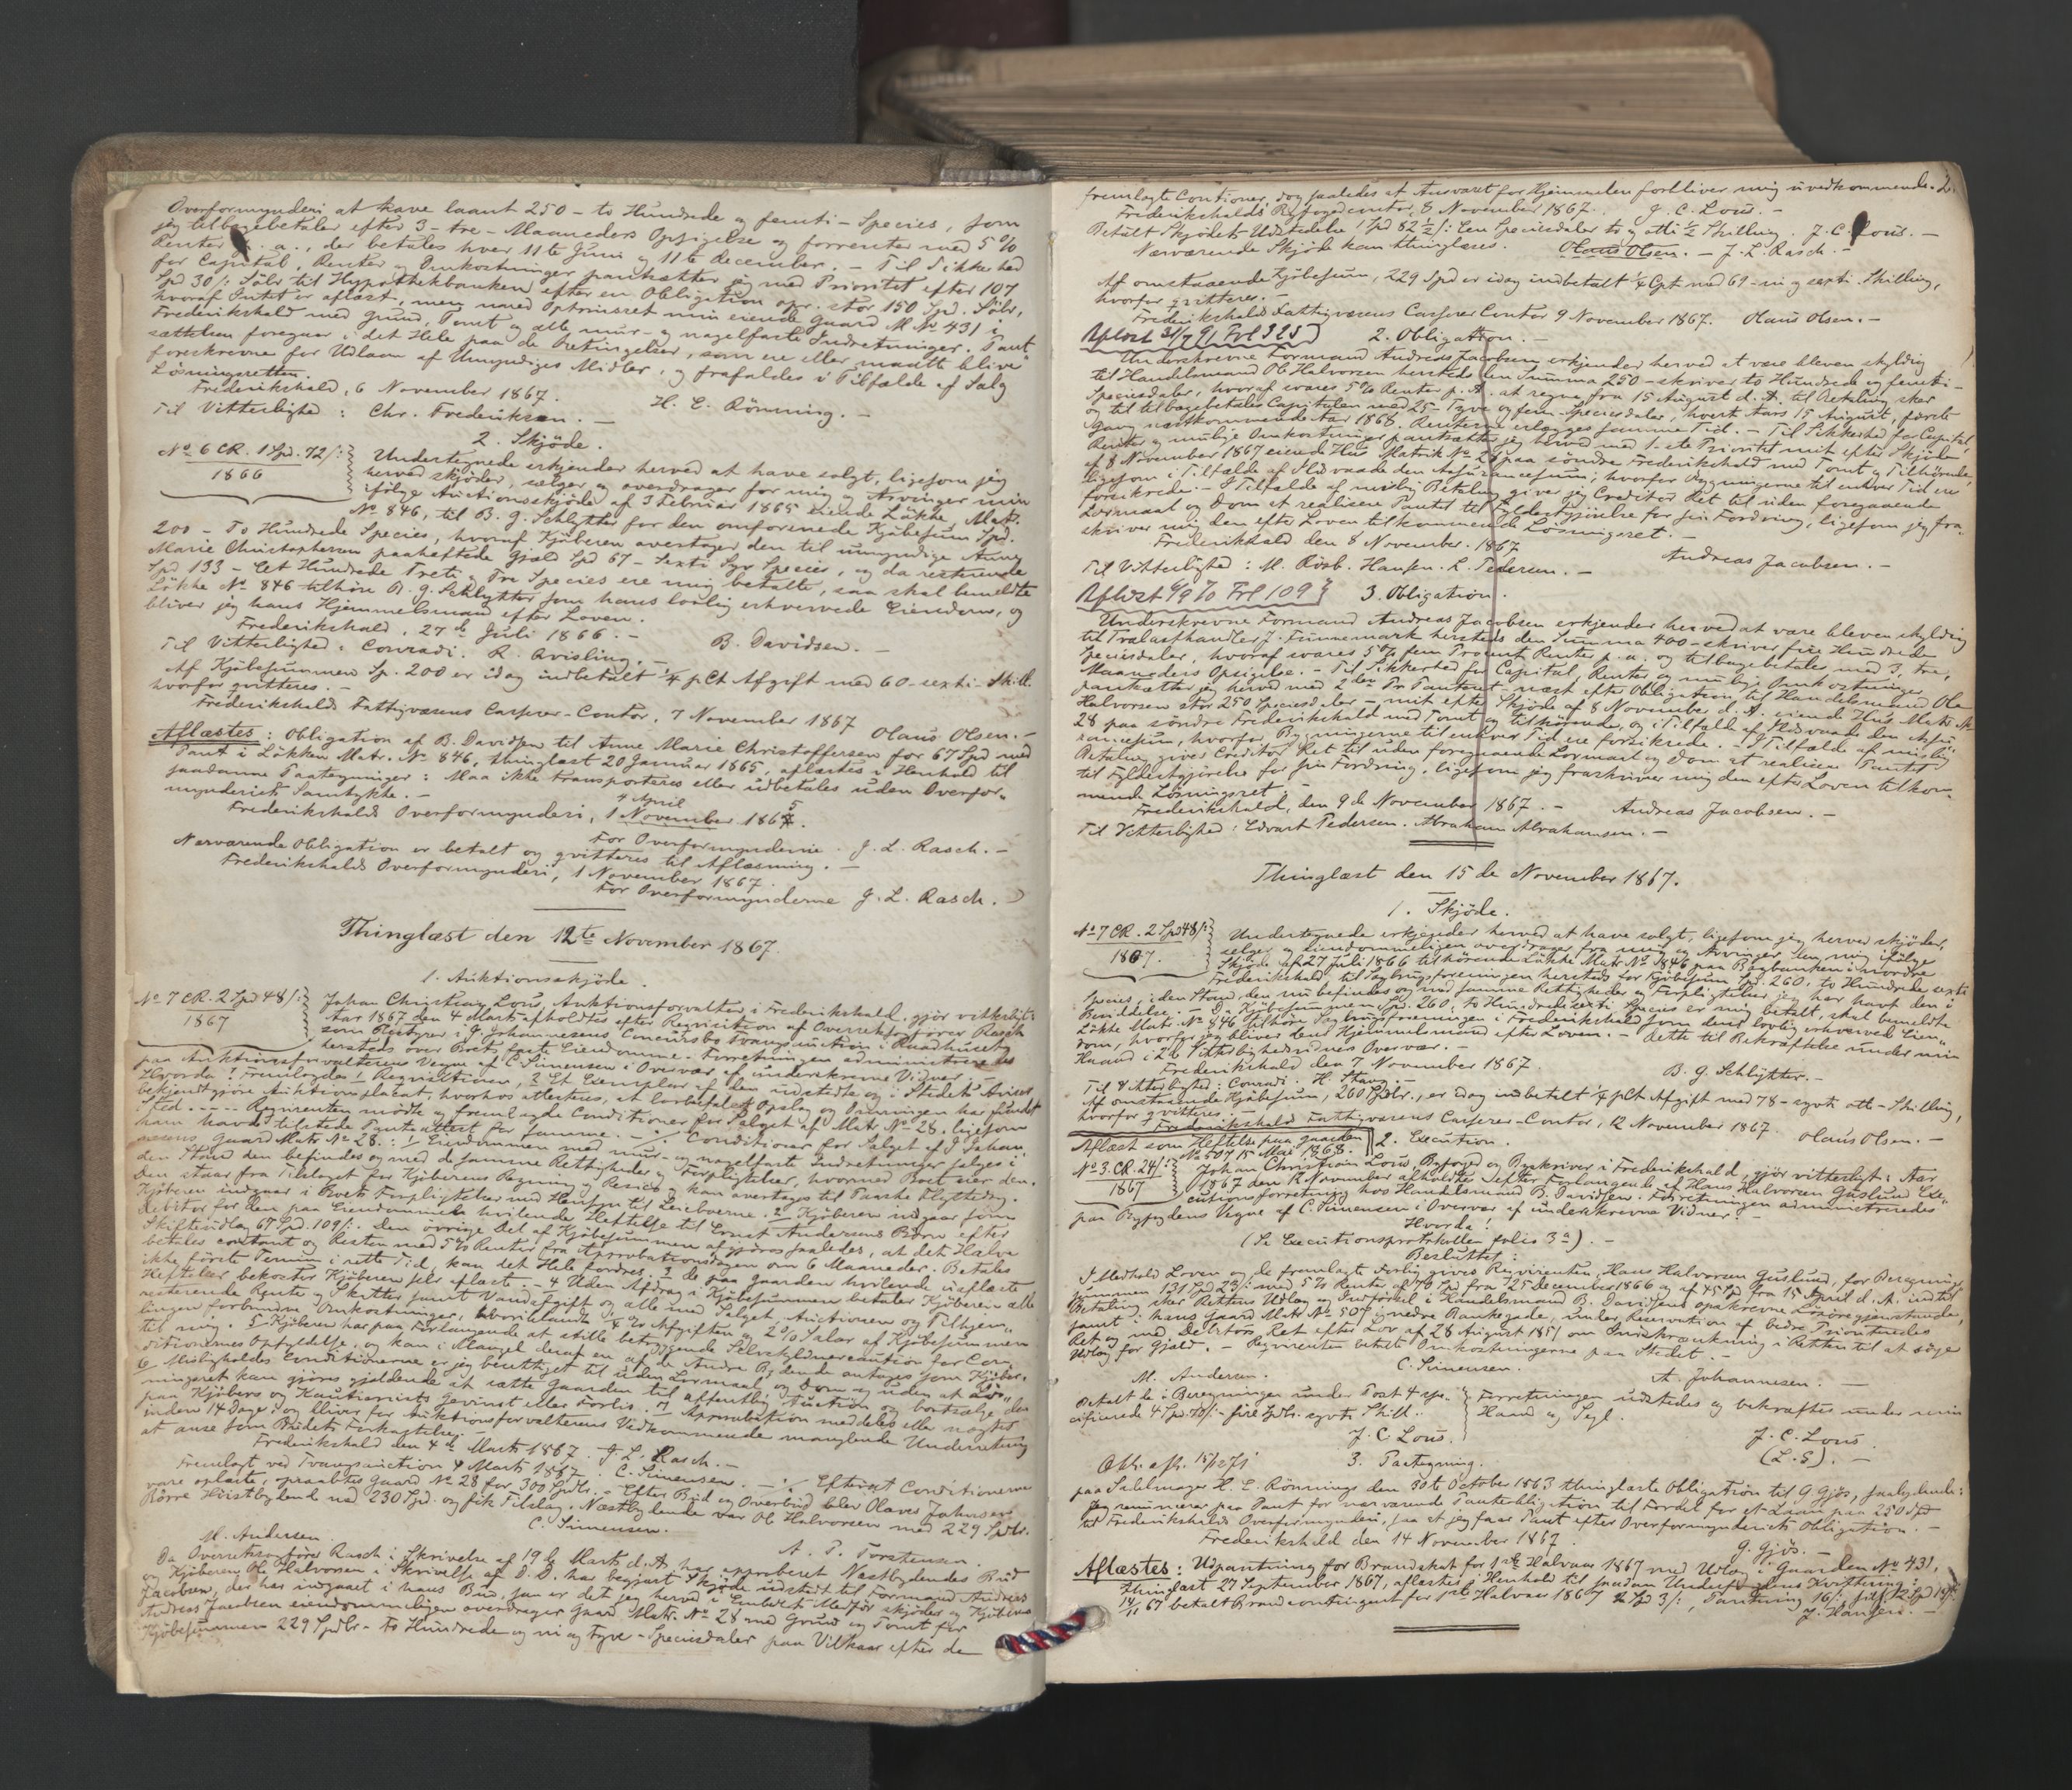 Overformynderi at have laant 250 - to Hundrede og femti - Species, som
jeg tilbagebetaler efter 3 - tre - Maaneders Opsigelse og forrenter med 5 %
Renter p. a., der betales hver 11te Juni og 11te December. - Til Sikkerhed
for Capital, Renter og Omkostninger pantsætter jeg med Prioritet efter 107
Spd 30 /: Sölv til Hypothekbanken efter en Obligation opr. stor 150 Spd. Sölv,
hvoraf Intet er aflæst, men med Optrinsret min eiende Gaard M. No 431 i
Frederikshald med Grund, Tomt og alle mur- og nagelfaste Indretninger. Pant-
sættelsen foregaar i det Hele paa de Betingelser, som ere eller maatte blive
foreskrevne for Udlaan af Umyndiges Midler, og frafaldes i Tilfælde af Salg
Lösningsretten.
Frederikshald, 6 November 1867.
H. E. Rönning. -
Til Vitterlighed: Chr. Frederiksen. -
2. Skjöde.
No 6 CR. 1 Spd. 72 /:
1866
Undertegnede erkjender herved at have solgt, ligesom jeg
herved skjöder, sælger og overdrager for mig og Arvinger min
ifölge Auctionsskjöde af 3 Februar 1865 eiende Lökke, Matr.
No 846, til B. G. Schlytter for den omforenede Kjöbesum Spd.
200 - To Hundrede Species, hvoraf Kjöberen overtager den til umyndige Anne
Marie Christophersen paaheftede Gjæld Spd 67 - Sexti Syv Species, og da resterende
Spd 133 - Et Hundrede Treti og Tre Species ere mig betalte, saa skal bemeldte
Lökke No 846 tilhöre B. G. Schlytter som hans lovlig erhvervede Eiendom, og
bliver jeg hans Hjemmelsmand efter Loven.
Frederikshald, 27de Juli 1866. -
B. Davidsen. -
Til Vitterlighed: Conradi. R. Qvisling. -
Af Kjöbesummen Sp. 200 er idag indbetalt 1/4 pCt Afgift med 60 - sexti - Skill.
hvorfor qvitteres. -
Frederikshalds Fattigvæsens Casserer-Contor, 7 November 1867
Olaus Olsen. -
Aflæstes: Obligation af B. Davidsen til Anne Marie Christoffersen for 67 Spd med
Pant i Lökken Matr. No 846, thinglæst 20 Januar 1865, aflæstes i Henhold til
saadanne Paategninger: Maa ikke transporteres eller udbetales uden Overfor-
mynderiets Samtykke. -
Frederikshalds Overformynderi, 4 April 1865.
For Overformynderne J. L. Rasch. -
Nærværende Obligation er betalt og qvitteres til Aflæsning. -
Frederikshalds Overformynderi, 1 November 1867.
For Overformynderne J. L. Rasch.
Thinglæst den 12te November 1867.
1. Auktionsskjöde.
No 7 CR. 2 Spd 48 /:
1867
Johan Christian Lous, Auktionsforvalter i Frederikshald, gjör vitterligt:
Aar 1867 den 4 Marts afholdtes efter Reqvisition af Overretssagförer Rasch
som Bestyrer i J. Johannesens Concursbo Tvangsauction i Raadhuset
hersteds over Boets faste Eiendomme. Forretningen administreredes
paa Auktionsforvalterens Vegne af C. Simensen i Overvær af underskrevne Vidner. -
Hvorda! Fremlagdes 1 Reqvisitionen, 2 Et Exemplar af den udstedte og i Stedets Aviser
bekjendtgjorte Auktionsplacat, hvorhos attesteres, at lovbefalet Opslag og Omringen har fundet
Sted. - - - Reqvirenten mödte og fremlagde Conditioner for Salget af Matr. No 28. ligesom
han havde tilstede Panteattest for samme. - Conditioner for Salget af J. Johan-
nesens Gaard Matr No 28.: 1 Eiendommen med mur- og nagelfaste Indretninger sælges i
den Stand den befindes og med de samme Rettigheder og Forpligtelser, hvormed Boet eier den.
Den staar fra Tilslaget for Kjöberens Regning og Resico og kan overtages til Paaske Flyttedag.
Kjöberen indgaar i Boets Forpligtelser med Hensyn til Leieboerne. 2 Kjöberen indgaar som
Debitor for den paa Eiendommen hvilende Heftelse til Ernst Andersens Börn efter
Skifteudlæg 67 Spd. 109 /:. Den övrige Del af Kjöbesummen afgjöres saaledes, at det Halve
betales contant og Resten med 5 % Renter fra Approbationsdagen om 6 Maaneder. Betales
ikke förste Termin i rette Tid, kan det Hele fordres. 3 De paa Gaarden hvilende uaflæste
Heftelser bekoster Kjöberen selv aflæst. - 4 Uden Afdrag i Kjöbesummen betaler Kjöberen alle
resterende Rente og Skatter samt Vandafgift og alle med Salget, Auctionen og Tilhjem-
lingen forbundne Omkostninger, hvoriblandt 1/4 % Afgiften og 2 % Salær af Kjöbesummen
til mig. 5 Kjöberen har paa Forlangende at stille betryggende Selvskyldnercaution for Con-
ditionernes Opfyldelse, og kan i Mangel deraf en af de Andre Bydende antages som Kjöber.
6 Misligholdes Conditionerne er jeg berettiget til uden Lovmaal og Dom og uden at Lös-
ningsret kan gjöres gjeldende at sætte Gaarden til offentlig Auction og bortsælge den
paa Kjöbers og Kautionists Gevinst eller Forlis. 7 Approbation meddeles eller nægtes
inden 14 Dage og bliver for Auktionsforvalterens Vedkommende manglende Underretning
at anse som Budets Forkastelse. -
Frederikshald den 4de Marts 1867. J. L. Rasch. -
Fremlagt ved Tvangsauction 4 Marts 1867. C. Simensen. - Efterat Conditionerne
vare oplæste, opraabtes Gaard No 28 for 300 Spdlr. - Efter Bud og Overbud blev Olaves Johnsen
Börre Höistbydende med 230 Spd. og fik Tilslag. Næstbydende var Ole Halvorsen med 229 Spdlr.
C. Simensen.
M. Andersen.
A. P. Torstensen.
Da Overretssagförer Rasch i Skrivelse af 19de Marts d. A. har approberet Næstbydendes Bud
og Kjöberen Ole Halvorsen i Skrivelse af D. D. har begjært Skjöde udstedt til Formand Andreas
Jacobsen, der har indgaaet i hans Bud, saa er det jeg herved i Embeds Medför skjöder og til
Andreas Jacobsen eiendommeligen overdrager Gaard Matr. No 28 med Grund og Tomt for
Kjöbesummen 229 Spdlr - to Hundrede og ni og tyve - Speciesdaler paa Vilkaar efter de
2.
fremlagte Conditioner, dog saaledes at Ansvaret for Hjemmelen forbliver mig uvedkommende.
Frederikshalds Byfogedcontor, 8 November 1867. J. C. Lous. -
Betalt Skjödets Udstedelse 1 Spd 82 1/2 /: Een Speciesdaler to og otti 1/2 Skilling. J. C. Lous. -
Nærværende Skjöde kan thinglæses. Olaus Olsen. - J. L. Rasch. -
Af omstaaende Kjöbesum, 229 Spd er idag indbetalt 1/4 Cpt med 69 - ni og sexti Skilling,
hvorfor qvitteres. -
Frederikshalds Fattigvæsens Casserer Contor 9 November 1867. Olaus Olsen. -
Aflæst 31/7 91. Fol 325
2. Obligation. -
Underskrevne Formand Andreas Jacobsen erkjender herved at være bleven skyldig
til Handelsmand Ole Halvorsen hersteds den Summa 250 - skriver to Hundrede og femti -
Speciesdaler, hvoraf svares 5 % Renter p. A. at regne fra 15 August d. A. til Betaling sker
og til tilbagebetales Capitalen med 25 - Tyve og fem - Speciesdaler, hvert Aars 15 August, förste
Gang næstkommende Aar 1868. Renterne erlægges samme Tid. - Til Sikkerhed for Capital,
Renter og mulige Omkostninger pantsætter jeg herved med 1ste Prioritet mit efter Skjöde
af 8 November 1867 eiende Hus Matrik No 28 paa söndre Frederikshald med Tomt og Tilhörende,
ligesom i Tilfælde af Ildsvaade den Assurancesum, hvorfor Bygningerne til enhver Tid ere
forsikrede. - I Tilfælde af mislig Betaling giver jeg Creditor Ret til uden foregaaende
Lovmaal og Dom at realisere Pantet til Fyldestgjörelse for sin Fordring, ligesom jeg fra-
skriver mig den efter Loven tilkommende Lösningsret. -
Frederikshald den 8 November. 1867
Andreas Jacobsen. -
Til Vitterlighed: M. Rösb. Hansen. L. Pedersen. -
3. Obligation.
Underskrevne Formand Andreas Jacobsen erkjender herved at være bleven skyldig
til Trælasthandler J. Finnemark hersteds den Summa 400 - skriver fire Hundrede
Speciesdaler, hvoraf svares 5 % fem Procent Renter p. a. og tilbagebetales med 3, tre,
Maaneders Opsigelse. - Til Sikkerhed for Capital, Renter og mulige Omkostninger
pantsætter jeg herved med 2den Pr. Panteret - næst efter Obligation til Handelsmand Ole
Halvorsen stor 250 Speciesdaler - mit efter Skjöde af 8 November d. A. eiende Hus Matr. No
28 paa söndre Frederikshald med Tomt og tilhörende, og i Tilfælde af Ildsvaade den Assu-
rancesum, hvorfor Bygningerne til enhver Tid ere forsikrede. - I Tilfælde af mislig
Betaling giver Creditor Ret til uden foregaaende Lovmaal og Dom at realisere Pantet
til Fyldestgjörelse for sin Fordring, ligesom jeg fraskriver mig den efter Loven tilkom-
mende Lösningsret. -
Frederikshald, den 9de November 1867. -
Andreas Jacobsen. -
Til Vitterlighed: Edvart Pedersen. Abraham Abrahamsen. -
Thinglæst den 15de November 1867.
1. Skjöde.
No 7 CR. 2 Spd 48 /:
1867.
Undertegnede erkjender herved at have solgt, ligesom jeg herved skjöder,
sælger og eiendommeligen overdrager fra mig og Arvinger den mig ifölge
Skjöde af 27 Juli 1866 tilhörende Lökke Matr. No 846 paa Bybanken i nordre
Frederikshald til Sagbrugsforeningen hersteds for Kjöbesum Spd. 260, to Hundrede sexti
Species, i den Stand, den nu befindes og med samme Rettigheder og Forpligtelser jeg har havt den i
Besiddelse. - Da Kjöbesummen Spd. 260, to Hundrede sexti Species er mig betalt, skal bemeldte
Lökke Matr. No 846 tilhöre Sagbrugsforeningen i Frederikshald som dens lovlig erhverved Eien-
dom, hvorfor jeg bliver dens Hjemmelsmand efter Loven. - Dette til Bekræftelse under min
Haand i 2de Vitterlighedsvidners Overvær. -
Frederikshald den 7 November 1867
B. G. Schlytter. -
Til Vitterlighed: Conradi. H. Stang. -
Af omstaaende Kjöbesum, 260 Spdlr., er idag indbetalt 1/4 pCt Afgift med 78 - sytti otte - Skilling,
hvorfor qvitteres. -
Frederikshald Fattigvæsens Casserer-Contor, 12 November 1867. Olaus Olsen. -
Aflæst som Heftelse paa Gaarden
No 507 15 Mai 1868.
2. Execution.
No 3. CR. 24 /:
1867
Johan Christian Lous, Byfoged og Byskriver i Frederikshald, gjör vitterligt: Aar
1867 den 12 November afholdtes efter Forlangende af Hans Halvorsen Guslund Exe-
cutionsforretning hos Handelsmand B. Davidsen. Forretningen administreredes
paa Byfogdens Vegne af C. Simensen i Overvær af underskrevne Vidner. -
Hvorda!
(Se Executionsprotokollen folio 3 a). -
Besluttet:
I Medhold Loven og de fremlagte Forlig gives Reqvirenten, Hans Halvorsen Guslund, for
131 Spd 23 /: med 5 % Rente af 79 Spd fra 25 December 1866 og af 45 Spd fra 15 April d. A. indtil
Betaling sker Rettens Udlæg og Indförsel i Handelsmand B. Davidsens opskrevne Lösöregjenstande,
samt i hans Gaard Matr No 507 i nedre Bankegade, under Reservation af bedre Prioriteredes
Ret og med Debitors Ret efter Lov af 28 August 1851 om Indskrænkning i Retten til at söge
Udlæg for Gjæld. - Reqvirenten betalte Omkostningerne paa Stedet. -
C. Simensen.
M. Andersen.
A. Johannesen. -
Betalt de i Beregningen under Post 4 spe-
cificerede 4 Spd. 70 /: - fire Spdlr. sytti Skill.
J. C. Lous.
Forretningen udstedes og bekræftes under min
Haand og Segl.
J. C. Lous
(L. S). -
3. Paategning.
paa Sadelmager H. E. Rönnings den 30te October 1863 thinglæste Obligation til G. Gjös, saalydende:
Jeg renuncerer paa Pant for nærværende Panteobligation til Fordel for et Laan paa 250 Spd
til Frederikshalds Overformynderi, saa at jeg faar Pant efter Overformynderiets Obligation. -
Frederikshald den 14 November 1867
G. Gjös. -
Aflæstes: Udpantning for Brandskat for 1ste Halvaar 1867 med Udlæg i Gaarden No 431,
thinglæst 27 September 1867, aflæstes i Henhold til saadan Qvittering:
14/11 67 betalt Brandcontingent for 1ste Halvaar 1867 2 Spd 3 /:, Pantning 16 /:
J. Hansen. -